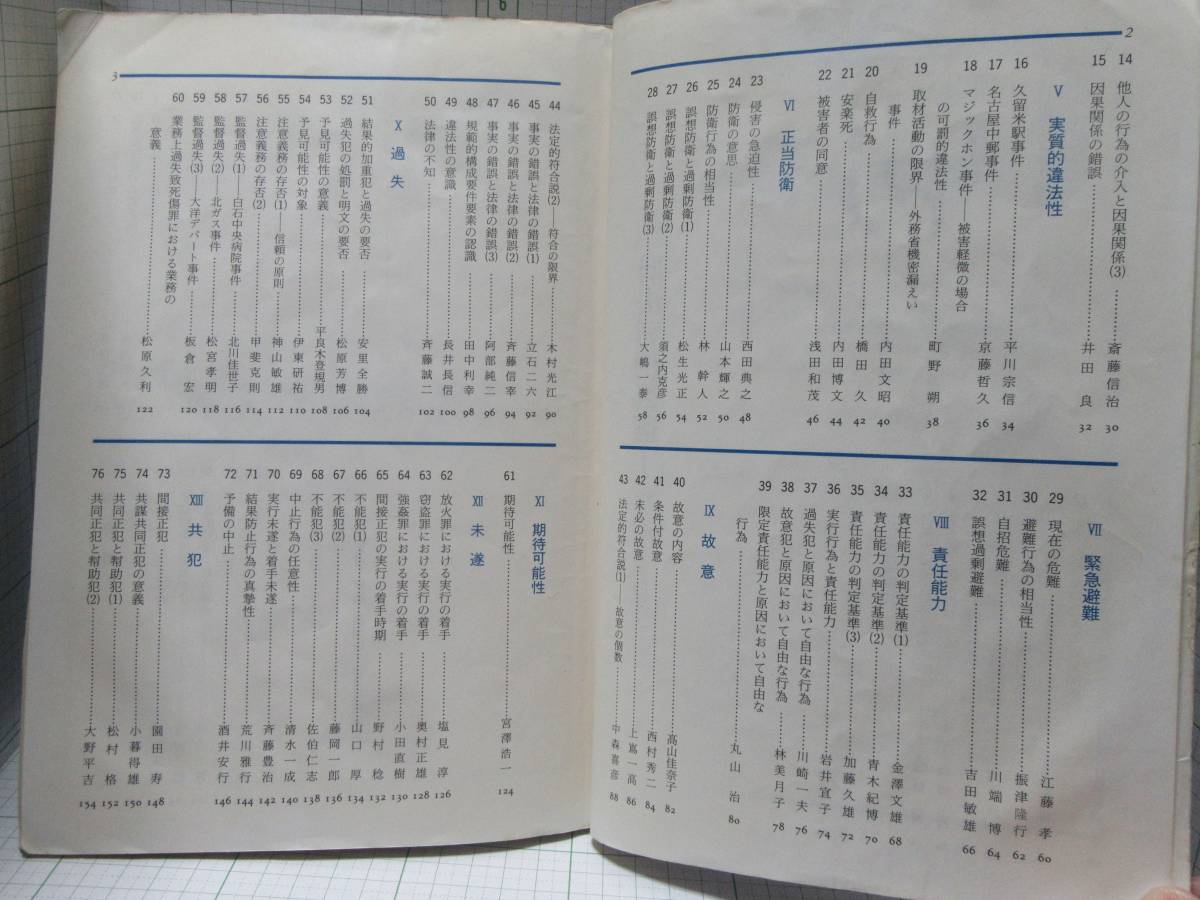 6
2
14 他人の行為の介入と因果関係(3)……斎藤信治 30
15 因果関係の錯誤……井田良 32
Ⅴ 実質的違法性
16 久留米駅事件……平川宗信 34
17 名古屋中郵事件……京藤哲久 36
18 マジックホン事件――被害軽微の場合
の可罰的違法性
19 取材活動の限界――外務省機密漏えい
事件……町野朔 38
20 自救行為……内田文昭 40
21 安楽死……橋田久 42
22 被害者の同意……内田博文 44
浅田和茂 46
Ⅵ 正当防衛
23 侵害の急迫性……西田典之 48
24 防衛の意思……山本輝之 50
25 防衛行為の相当性……林幹人 52
26 誤想防衛と過剰防衛(1)……松生光正 54
27 誤想防衛と過剰防衛(2)……須之内克彦 56
28 誤想防衛と過剰防衛(3)……大嶋一泰 58
Ⅶ 緊急避難
29 現在の危難……江藤孝 60
30 避難行為の相当性……振津隆行 62
31 自招危難……川端博 64
32 誤想過剰避難……吉田敏雄 66
Ⅷ 責任能力
33 責任能力の判定基準(1)……金澤文雄 68
34 責任能力の判定基準(2)……青木紀博 70
35 責任能力の判定基準(3)……加藤久雄 72
36 実行行為と責任能力……岩井宜子 74
37 過失犯と原因において自由な行為……川崎一夫 76
38 故意犯と原因において自由な行為……林美月子 78
39 限定責任能力と原因において自由な
行為……丸山治 80
Ⅸ 故意
40 故意の内容……高山佳奈子 82
41 条件付故意……西村秀二 84
42 未必の故意……上嶌一高 86
43 法定的符合説(1)――故意の個数……中森喜彦 88
3
44 法定的符合説(2)――符合の限界……木村光江 90
45 事実の錯誤と法律の錯誤(1)……立石二六 92
46 事実の錯誤と法律の錯誤(2)……斉藤信宰 94
47 事実の錯誤と法律の錯誤(3)……阿部純二 96
48 規範的構成要件要素の認識……田中利幸 98
49 違法性の意識……長井長信 100
50 法律の不知……斉藤誠二 102
Ⅹ 過失
51 結果的加重犯と過失の要否……安里全勝 104
52 過失犯の処罰と明文の要否……松原芳博 106
53 予見可能性の意義……平良木登規男 108
54 予見可能性の対象……伊東研祐 110
55 注意義務の存否(1)――信頼の原則……神山敏雄 112
56 注意義務の存否(2)……甲斐克則 114
57 監督過失(1)――白石中央病院事件……北川佳世子 116
58 監督過失(2)――北ガス事件……松宮孝明 118
59 監督過失(3)――大洋デパート事件……板倉宏 120
60 業務上過失致死傷罪における業務の
意義……松原久利 122
Ⅺ 期待可能性
61 期待可能性……宮澤浩一 124
Ⅻ 未遂
62 放火罪における実行の着手……塩見淳 126
63 窃盗罪における実行の着手……奥村正雄 128
64 強姦罪における実行の着手……小田直樹 130
65 間接正犯の実行の着手時期……野村稔 132
66 不能犯(1)……山口厚 134
67 不能犯(2)……藤岡一郎 136
68 不能犯(3)……佐伯仁志 138
69 中止行為の任意性……清水一成 140
70 実行未遂と着手未遂……斉藤豊治 142
71 結果防止行為の真摯性……荒川雅行 144
72 予備の中止……酒井安行 146
XIII 共犯
73 間接正犯……園田寿 148
74 共謀共同正犯の意義……小暮得雄 150
75 共同正犯と幇助犯(1)……松村格 152
76 共同正犯と幇助犯(2)……大野平吉 154